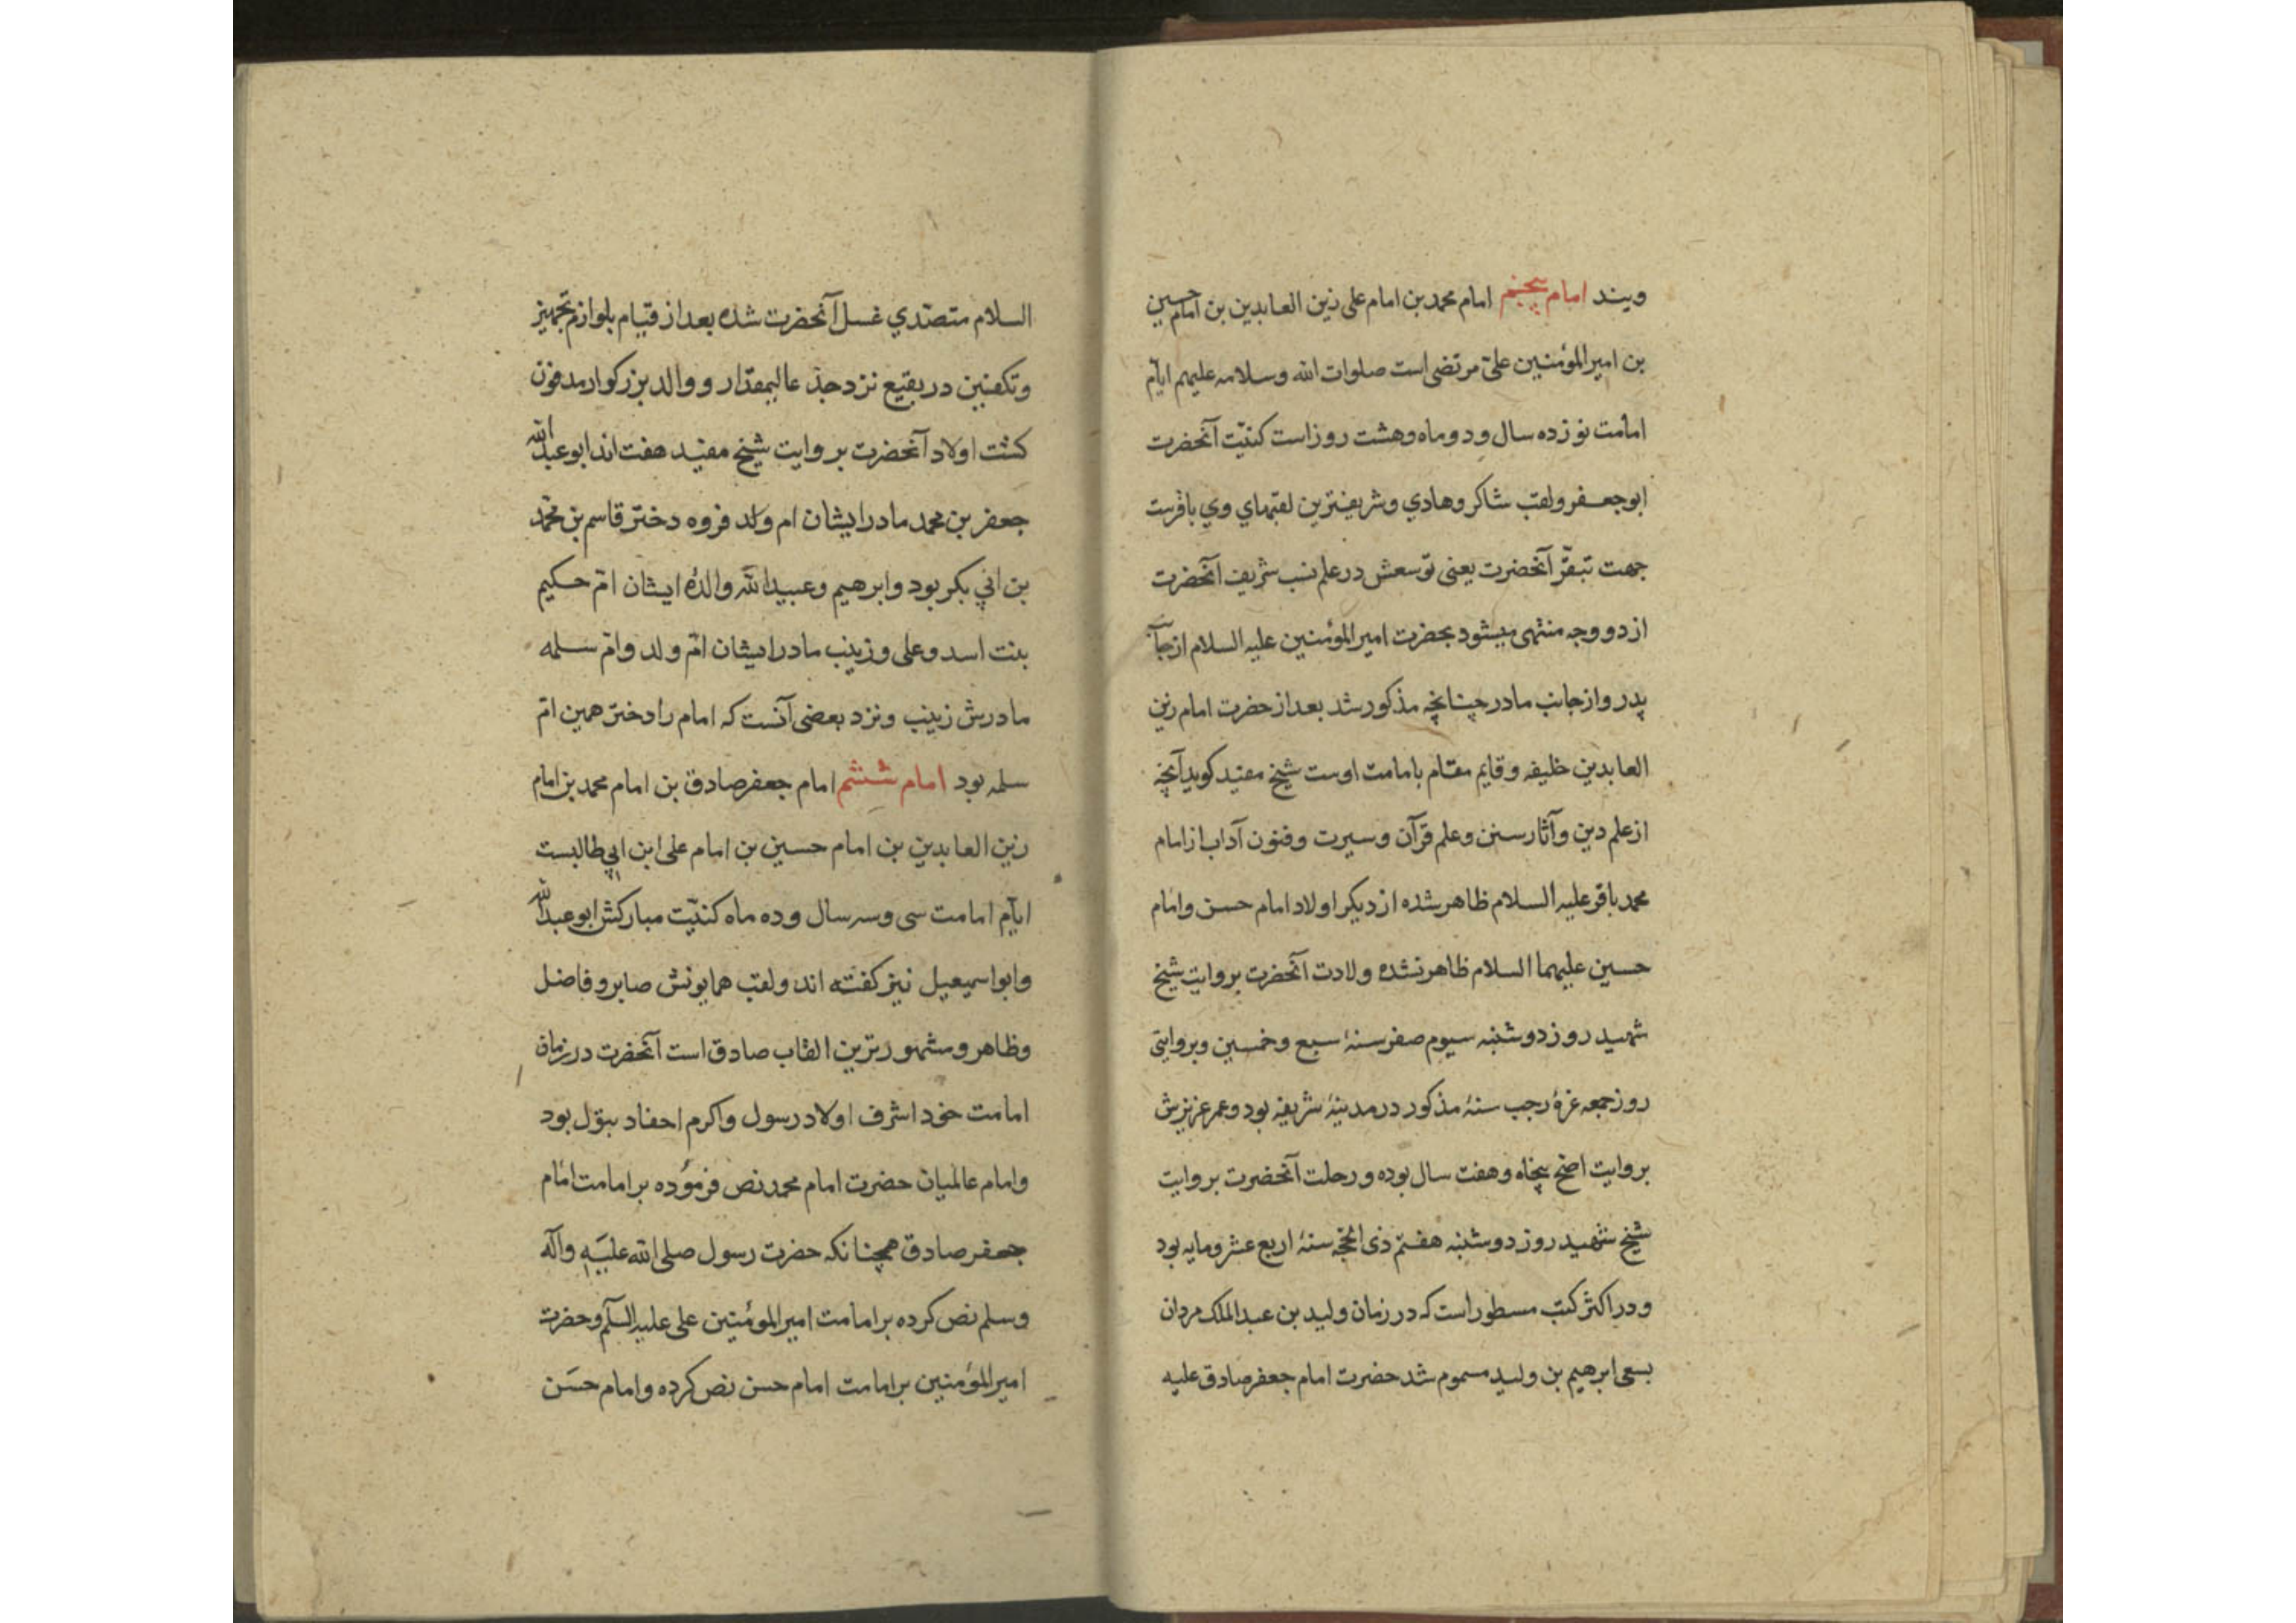 ویند امام پنجم امام محمد بن امام علی زین العابدین بن امام حسین
بن امیرالمؤمنین علی مرتضی است صلوات الله وسلامه علیهم ایام
امامت نوزده سال و دو ماه و هشت روز است کنیّت آنحضرت
ابوجعفر ولقب شاکر وهادي وشریفترین لقبهاي وي باقرست
جهت تبقّر آنحضرت یعنی توسعش در علم نسب شریف آنحضرت
از دو وجه منتهی میشود بحضرت امیرالمؤمنین علیه السلام از جانب
پدر و از جانب مادر چنانچه مذکور شد بعد از حضرت امام زین
العابدین خلیفه و قایم مقام بامامت اوست شیخ مفید کوید آنچه
از علم دین وآثار سنن وعلم قرآن وسیرت وفنون آداب از امام
محمد باقر علیه السلام ظاهر شده از دیکر اولاد امام حسن وامام
حسین علیهما السلام ظاهر نشده ولادت آنحضرت بروایت شیخ
شهید روز دوشنبه سیوم صفر سنۀ سبع وخمسین وبروایتی
روز جمعه غرۀ رجب سنۀ مذکور در مدینۀ شریفه بود وعمر عزیزش
بروایت اصح پنجاه وهفت سال بوده و رحلت آنحضرت بروایت
شیخ شهید روز دوشنبه هفتم ذی الحجّه سنۀ اربع عشر ومایه بود
و در اکثر کتب مسطور است که در زمان ولید بن عبدالملک مردان
بسعی ابرهیم بن ولید مسموم شد حضرت امام جعفر صادق علیه
السلام متصدّي غسل آنحضرت شده بعد از قیام بلوازم تجهیز
وتکفین در بقیع نزد جدّ عالیمقدار و والد بزرکوار مدفون
کشت اولاد آنحضرت بروایت شیخ مفید هفت اند ابوعبدالله
جعفر بن محمد مادر ایشان ام ولد فروه دختر قاسم بن محمد
بن ابي بکر بود وابرهیم وعبیدالله والدۀ ایشان امّ حکیم
بنت اسد وعلی وزینب مادر ایشان امّ ولد وامّ سلمه
مادرش زینب ونزد بعضی آنست که امام را دختر همین امّ
سلمه بود امام ششم امام جعفر صادق بن امام محمد بن امام
زین العابدین بن امام حسین بن امام علی ابن ابي طالبست
ایام امامت سی وسه سال وده ماه کنیّت مبارکش ابوعبدالله
وابواسمیعیل نیز کفته اند ولقب همایونش صابر وفاضل
وظاهر ومشهورترین القاب صادق است آنحضرت در زمان
امامت خود اشرف اولاد رسول واکرم احفاد بتول بود
وامام عالمیان حضرت امام محمد نص فرموده بر امامت امام
جعفر صادق همچنانکه حضرت رسول صلی الله علیه وآله
وسلم نص کرده بر امامت امیرالمؤمنین علی علیه السلم وحضرت
امیرالمؤمنین بر امامت امام حسن نص کرده وامام حسن